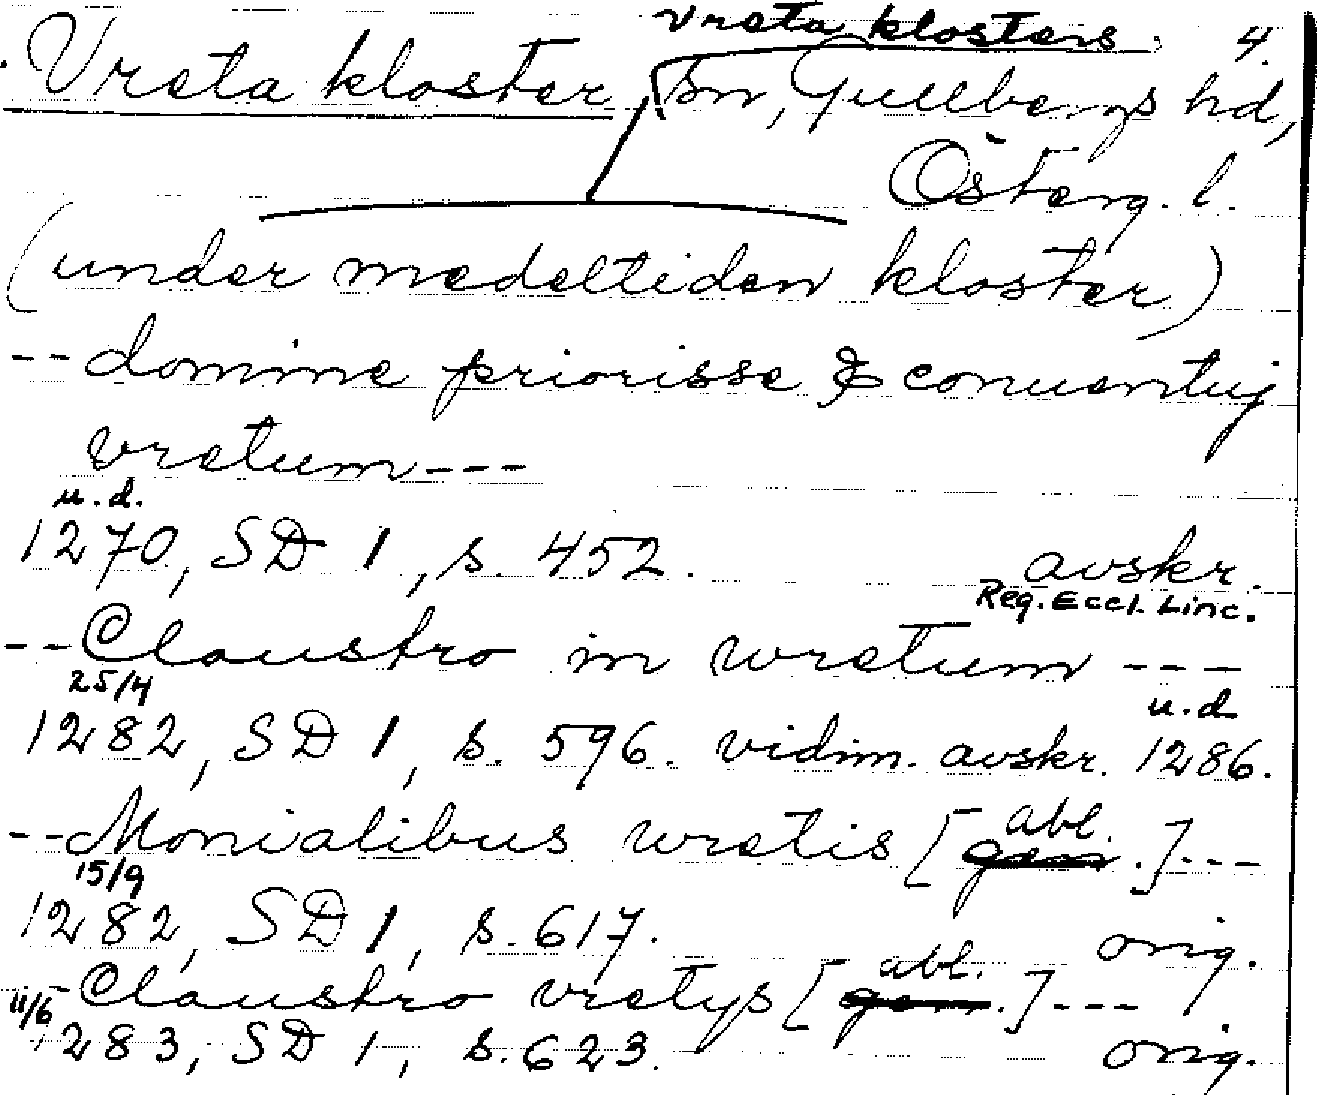 Vreta klosters 4.
Vreta kloster sn, Gullbergs hd,
Österg. l.
(under medeltiden kloster)
-- domine priorisse & conuentuj
vretum ---
u.d.
1270, SD 1, s. 452. avskr.
Reg. Eccl. Linc.
-- Claustro in wretum ---
25/4 u.d.
1282, SD 1, s. 596. vidim. avskr. 1286.
-- Monialibus wretis [gen. abl.] ---
15/9
1282, SD 1, s. 617. orig.
- Claustro vretys [gen. abl.] ---
11/6
1283, SD 1, s. 623. orig.